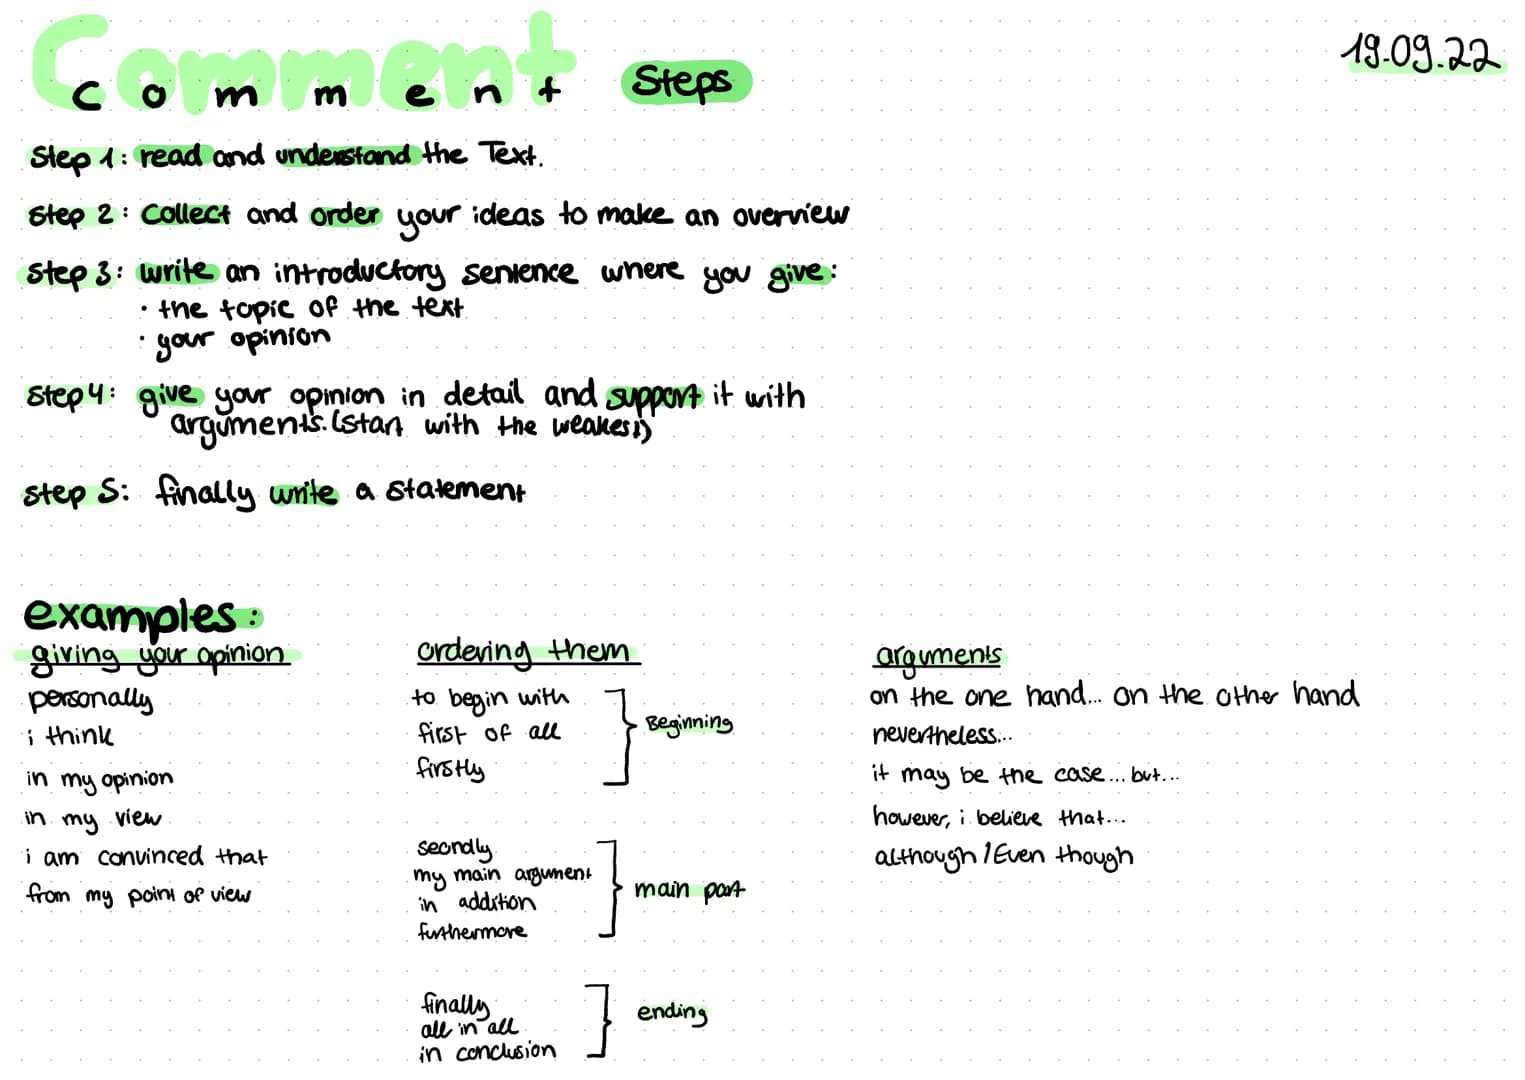 Comment
Comment Steps
19.09.22
Step 1: read and understand the Text.
Step 2: Collect and order your ideas to make an overview
Step 3: write an introductory sentence where you give:
· the topic of the text
· your opinion
Step 4: give your opinion in detail and support it with
arguments. (start with the weakest)
step 5: finally write a statement
examples:
giving your opinion
personally
i think
in my opinion
in my view
i am convinced that
from my point of view
ordering them
to begin with
first of all
firstly
Beginning
secndly
my main argument
in addition
furthermore
main part
finally
all in all
in conclusion
ending
arguments
on the one hand... on the other hand
nevertheless...
it may be the case... but...
however, i believe that...
although / Even though